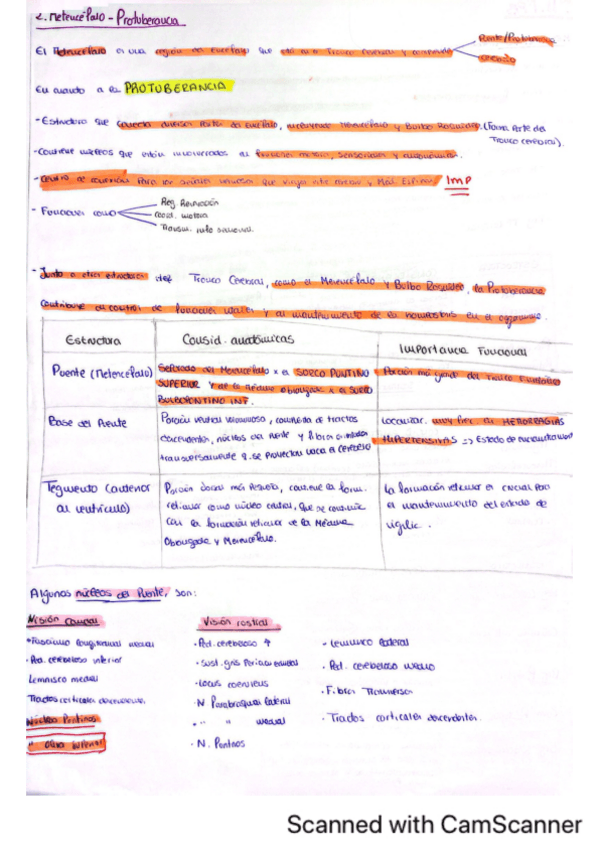 2. Metencéfalo - Protuberancia
El Metencéfalo es una región del Encéfalo que está en el Tronco Cerebral y comprende
Puente/Protuberancia
Cerebelo
En cuanto a la PROTUBERANCIA
- Estructura que conecta diversas Partes del Encéfalo, incluyendo Mesencéfalo y Bulbo Raquídeo. (Forma Parte del
Tronco cerebral).
- Contiene núcleos que están involucrados en funciones motoras, sensoriales y autonómicas.
- Centro de Para las señales nerviosas que viajan entre cerebro y Méd. Espinal IMP
- Funciones como
Reg. Respiración
Coord. motora
Transm. info sensorial.
- Junto a otras estructuras del Tronco Cerebral, como el Mesencéfalo y Bulbo Raquídeo, la Protuberancia
contribuye en control de funciones vitales y al mantenimiento de la homeostasis en el organismo.
Estructura
Consid. anatómicas
Importancia Funcional
Puente (Metencéfalo)
Separado del Mesencéfalo x el SURCO PONTINO
SUPERIOR y de la Médula oblongada x el SURCO
BULBOPONTINO INF.
Porción más grande del Tronco Encefálico
Base del Puente
Porción ventral voluminosa, compuesta de tractos
descendentes, núcleos del Puente y fibras orientadas
transversalmente q. se proyectan hacia el cerebelo
Localizac. muy frec. de HEMORRAGIAS
HIPERTENSIVAS => Estado de
Tegmento (anterior
al ventrículo)
Porción dorsal más pequeña, contiene la form.
reticular como núcleo central, que se continúa
con la formación reticular de la Médula
Oblongada y Mesencéfalo.
La formación reticular es crucial para
el mantenimiento del estado de
vigilia.
Algunos núcleos del Puente, son:
Visión caudal
• Fascículo longitudinal medial
• Ped. cerebeloso inferior
Lemnisco medial
Tractos corticales descendentes
Núcleo Pontinos
" Oliva Superior
Visión rostral
• Ped. cerebeloso
• Sust. gris Periacueductal
• Locus coeruleus
• N Parabraquial lateral
• " " medial
• N. Pontinos
- Lemnisco lateral
• Ped. cerebeloso medio
• Fibras Transversas
• Tractos corticales descendentes.
Scanned with CamScanner